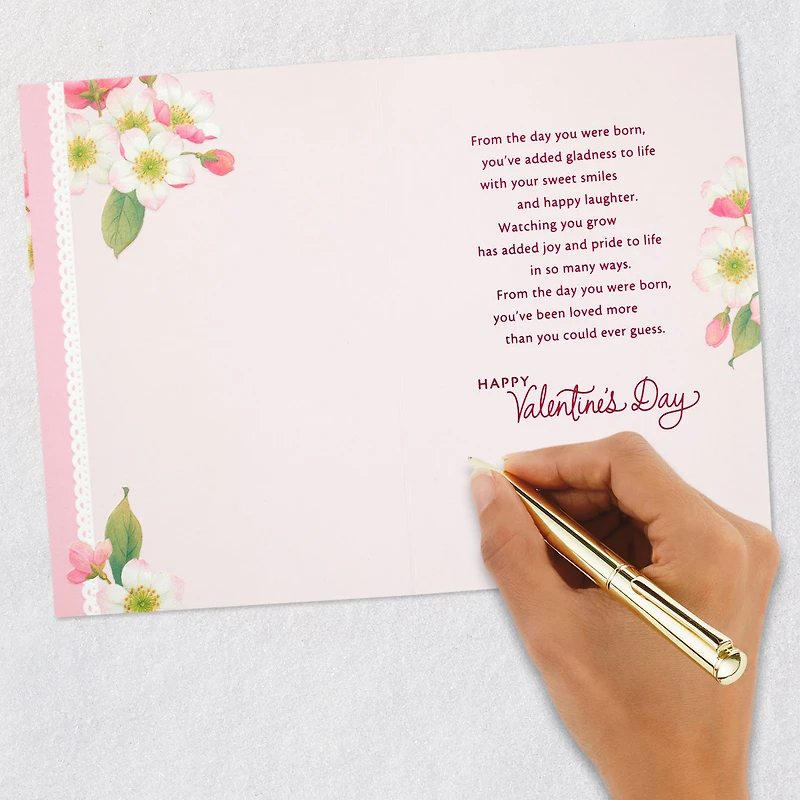 From the day you were born,
you've added gladness to life
with your sweet smiles
and happy laughter.
Watching you grow
has added joy and pride to life
in so many ways.
From the day you were born,
you've been loved more
than you could ever guess.
HAPPY
Valentine's Day